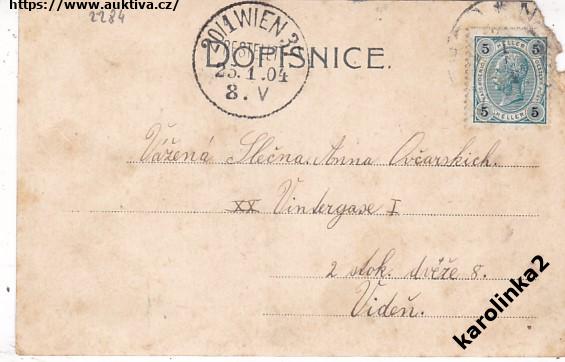 https://www.auktiva.cz/
2284
20/1 WIEN
BESTELLT
25.1.04
8.V
DOPISNICE.
5 5
5 5
HELLER
Vážená Slečna. Anna Ovčarskich.
XX Vintergase I
2 stok. dvéře 8.
Videň.
karolinka2